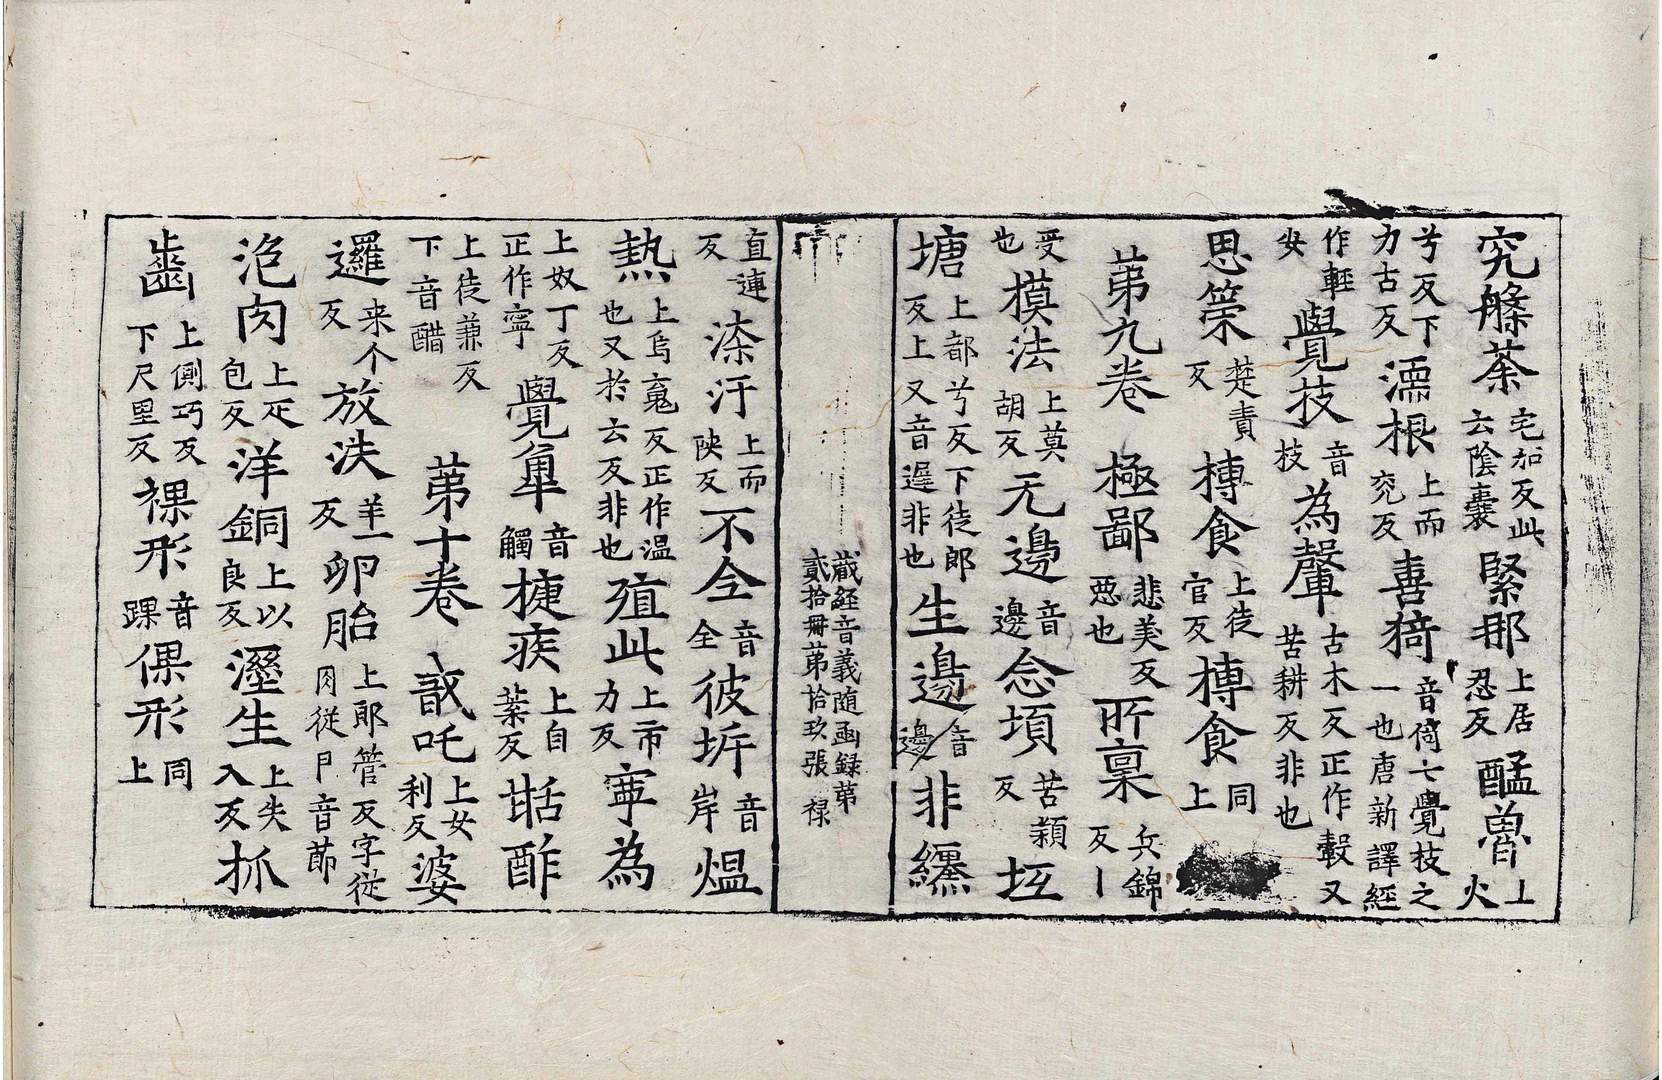 究槃荼宅加反此云陰囊緊那上居忍反醯魯上火
兮反下力古反濡根上而兖反喜猗音倚七覺枝之一也唐新譯經
作輕安覺技音枝為䡰古木反正作轂又苦耕反非也
思䇿楚責反摶食上徒官反摶食同上
苐九卷極鄙悲美反惡也所稟兵錦反丨
受也摸法上莫胡反无邊音邊念頃苦穎反坻
塘上都兮反下徒郎反上又音遲非也生邊音邊非纏
藏経音義随函録苐
貳拾冊苐拾玖張 禄
直連反㴕汙上而陝反不全音全彼坼音岸煴
熱上烏䰟反正作温也又於云反非也殖此上市力反寕為
上奴丁反正作寧覺觕音觸捷疾上自葉反甛酢
上徒兼反下音醋苐十卷敱吒上女利反婆
邏来个反放泆羊一反卵胎上郎管反字従卪音莭肉従
皰肉上疋包反洋銅上以良反溼生上失入反抓
齒上側巧反下尺里反祼形音踝倮形同上